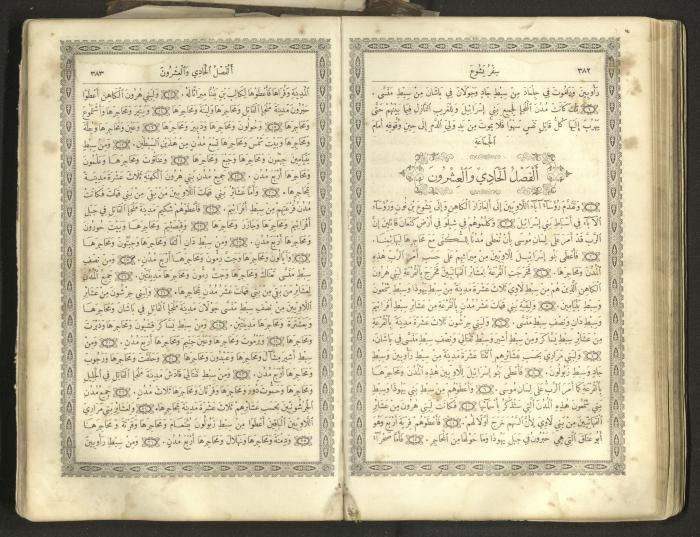 ٣٨٢
سِفْرُ يَشُوعَ
رَأُوبِينَ وَرَامُوتَ فِي جِلْعَادَ مِنْ سِبْطِ جَادٍ وَجُولَانَ فِي بَاشَانَ مِنْ سِبْطِ مَنَسَّى.
تِلْكَ كَانَتْ مُدُنَ الْمَلْجَإِ لِجَمِيعِ بَنِي إِسْرَائِيلَ وَلِلْغَرِيبِ النَّازِلِ فِيمَا بَيْنَهُمْ حَتَّى
يَهْرُبَ إِلَيْهَا كُلُّ قَاتِلِ نَفْسٍ سَهْوًا فَلَا يَمُوتَ مِنْ يَدِ وَلِيِّ الدَّمِ إِلَى حِينِ وُقُوفِهِ أَمَامَ
الْجَمَاعَةِ
أَلْفَصْلُ الْحَادِي وَالْعِشْرُونَ
وَتَقَدَّمَ رُؤَسَاءُ آبَاءِ اللَّاوِيِّينَ إِلَى أَلِعَازَارَ الْكَاهِنِ وَإِلَى يَشُوعَ بْنِ نُونٍ وَرُؤَسَاءِ
الْآبَاءِ فِي أَسْبَاطِ بَنِي إِسْرَائِيلَ وَكَلَّمُوهُمْ فِي شِيلُو فِي أَرْضِ كَنْعَانَ قَائِلِينَ إِنَّ
الرَّبَّ قَدْ أَمَرَ عَلَى لِسَانِ مُوسَى بِأَنْ نُعْطَى مُدُنًا لِلسُّكْنَى مَعَ مَحَاجِرِهَا لِبَهَائِمِنَا.
فَأَعْطَى بَنُو إِسْرَائِيلَ اللَّاوِيِّينَ مِنْ مِيرَاثِهِمْ عَلَى حَسَبِ أَمْرِ الرَّبِّ هٰذِهِ
الْمُدُنَ وَمَحَاجِرَهَا. فَخَرَجَتِ الْقُرْعَةُ لِعَشَائِرِ الْقَهَاتِيِّينَ فَخَرَجَ بِالْقُرْعَةِ لِبَنِي هٰرُونَ
الْكَاهِنِ الَّذِينَ هُمْ مِنْ سِبْطِ لَاوِي ثَلَاثَ عَشْرَةَ مَدِينَةً مِنْ سِبْطِ يَهُوذَا وَسِبْطِ شِمْعُونَ
وَسِبْطِ بَنْيَامِينَ. وَلِبَقِيَّةِ بَنِي قَهَاتَ عَشْرُ مُدُنٍ بِالْقُرْعَةِ مِنْ عَشَائِرِ سِبْطِ أَفْرَائِيمَ
وَسِبْطِ دَانَ وَنِصْفِ سِبْطِ مَنَسَّى. وَلِبَنِي جِرْشُونَ ثَلَاثَ عَشْرَةَ مَدِينَةً بِالْقُرْعَةِ
مِنْ عَشَائِرِ سِبْطِ يَسَّاكَرَ وَمِنْ سِبْطِ أَشِيرَ وَسِبْطِ نَفْتَالِي وَنِصْفِ سِبْطِ مَنَسَّى فِي بَاشَانَ.
وَلِبَنِي مَرَارِي بِحَسَبِ عَشَائِرِهِمِ اثْنَتَا عَشْرَةَ مَدِينَةً مِنْ سِبْطِ رَأُوبِينَ وَسِبْطِ
جَادٍ وَسِبْطِ زَبُولُونَ. فَأَعْطَى بَنُو إِسْرَائِيلَ اللَّاوِيِّينَ هٰذِهِ الْمُدُنَ وَمَحَاجِرَهَا
بِالْقُرْعَةِ كَمَا أَمَرَ الرَّبُّ عَلَى لِسَانِ مُوسَى. وَأَعْطَوْهُمْ مِنْ سِبْطِ بَنِي يَهُوذَا وَسِبْطِ
بَنِي شِمْعُونَ هٰذِهِ الْمُدُنَ الَّتِي سَتُذْكَرُ بِأَسْمَائِهَا فَكَانَتْ لِبَنِي هٰرُونَ مِنْ عَشَائِرِ
الْقَهَاتِيِّينَ مِنْ بَنِي لَاوِي لِأَنَّ السَّهْمَ خَرَجَ أَوَّلًا لَهُمْ. فَأَعْطَوْهُمْ قَرْيَةَ أَرْبَعَ وَهُوَ
أَبُو عَنَاقَ الَّتِي هِيَ حَبْرُونُ فِي جَبَلِ يَهُوذَا وَمَا حَوْلَهَا مِنَ الْمَحَاجِرِ. فَأَمَّا صَحْرَاءُ
أَلْفَصْلُ الْحَادِي وَالْعِشْرُونَ
٣٨٣
الْمَدِينَةِ وَقُرَاهَا فَأَعْطَوْهَا لِكَالِبَ بْنِ يَفُنَّا مِيرَاثًا لَهُ. وَلِبَنِي هٰرُونَ الْكَاهِنِ أَعْطَوْا
حَبْرُونَ مَدِينَةَ مَلْجَإِ الْقَاتِلِ وَمَحَاجِرَهَا وَلِبْنَةَ وَمَحَاجِرَهَا وَيَتِّيرَ وَمَحَاجِرَهَا وَأَشْتَمُوعَ
وَمَحَاجِرَهَا وَحُولُونَ وَمَحَاجِرَهَا وَدَبِيرَ وَمَحَاجِرَهَا وَعَيْنَ وَمَحَاجِرَهَا وَيُطَّةَ
وَمَحَاجِرَهَا وَبَيْتَ شَمْسَ وَمَحَاجِرَهَا تِسْعَ مُدُنٍ مِنْ هٰذَيْنِ السِّبْطَيْنِ. وَمِنْ سِبْطِ
بَنْيَامِينَ جِبْعُونَ وَمَحَاجِرَهَا وَجَبَعَ وَمَحَاجِرَهَا وَعَنَاتُوتَ وَمَحَاجِرَهَا وَعَلْمُونَ
وَمَحَاجِرَهَا أَرْبَعَ مُدُنٍ. جَمِيعُ مُدُنِ بَنِي هٰرُونَ الْكَهَنَةِ ثَلَاثَ عَشْرَةَ مَدِينَةً
بِمَحَاجِرِهَا. وَأَمَّا عَشَائِرُ بَنِي قَهَاتَ اللَّاوِيِّينَ مَنْ بَقِيَ مِنْ بَنِي قَهَاتَ فَكَانَتْ
مُدُنُ قُرْعَتِهِمْ مِنْ سِبْطِ أَفْرَائِيمَ. فَأَعْطَوْهُمْ شَكِيمَ مَدِينَةَ مَلْجَإِ الْقَاتِلِ فِي جَبَلِ
أَفْرَائِيمَ وَمَحَاجِرَهَا وَجَازَرَ وَمَحَاجِرَهَا وَقِبْصَيْمَ وَمَحَاجِرَهَا وَبَيْتَ حُورُونَ
وَمَحَاجِرَهَا أَرْبَعَ مُدُنٍ. وَمِنْ سِبْطِ دَانَ أَلْتَقَا وَمَحَاجِرَهَا وَجِبَّتُونَ وَمَحَاجِرَهَا
وَأَيَّالُونَ وَمَحَاجِرَهَا وَجَتَّ رِمُّونَ وَمَحَاجِرَهَا أَرْبَعَ مُدُنٍ. وَمِنْ نِصْفِ
سِبْطِ مَنَسَّى تَعْنَاكَ وَمَحَاجِرَهَا وَجَتَّ رِمُّونَ وَمَحَاجِرَهَا مَدِينَتَيْنِ. جَمِيعُ الْمُدُنِ
لِعَشَائِرِ مَنْ بَقِيَ مِنْ بَنِي قَهَاتَ عَشْرُ مُدُنٍ بِمَحَاجِرِهَا. وَلِبَنِي جِرْشُونَ مِنْ عَشَائِرِ
اللَّاوِيِّينَ مِنْ نِصْفِ سِبْطِ مَنَسَّى جُولَانُ مَدِينَةُ مَلْجَإِ الْقَاتِلِ فِي بَاشَانَ وَمَحَاجِرُهَا
وَبَعَشْتَرَةُ وَمَحَاجِرُهَا مَدِينَتَيْنِ. وَمِنْ سِبْطِ يَسَّاكَرَ قِشْيُونُ وَمَحَاجِرُهَا وَدَبْرَتُ
وَمَحَاجِرُهَا وَيَرْمُوتُ وَمَحَاجِرُهَا وَعَيْنُ جَنِّيمَ وَمَحَاجِرُهَا أَرْبَعَ مُدُنٍ. وَمِنْ
سِبْطِ أَشِيرَ مِشْآلُ وَمَحَاجِرُهَا وَعَبْدُونُ وَمَحَاجِرُهَا وَحَلْقَتُ وَمَحَاجِرُهَا وَرَحُوبُ
وَمَحَاجِرُهَا أَرْبَعَ مُدُنٍ. وَمِنْ سِبْطِ نَفْتَالِي قَادَشُ مَدِينَةُ مَلْجَإِ الْقَاتِلِ فِي الْجَلِيلِ
وَمَحَاجِرُهَا وَحَمُّوتُ دُورَ وَمَحَاجِرُهَا وَقَرْتَانُ وَمَحَاجِرُهَا ثَلَاثَ مُدُنٍ. جَمِيعُ مُدُنِ
الْجِرْشُونِيِّينَ بِحَسَبِ عَشَائِرِهِمْ ثَلَاثَ عَشْرَةَ مَدِينَةً بِمَحَاجِرِهَا. وَلِعَشَائِرِ بَنِي مَرَارِي
اللَّاوِيِّينَ الْبَاقِينَ أَعْطَوْا مِنْ سِبْطِ زَبُولُونَ يُقْنَعَامَ وَمَحَاجِرَهَا وَقَرْتَةَ وَمَحَاجِرَهَا
وَدِمْنَةَ وَمَحَاجِرَهَا وَنَهْلَالَ وَمَحَاجِرَهَا أَرْبَعَ مُدُنٍ. وَمِنْ سِبْطِ رَأُوبِينَ